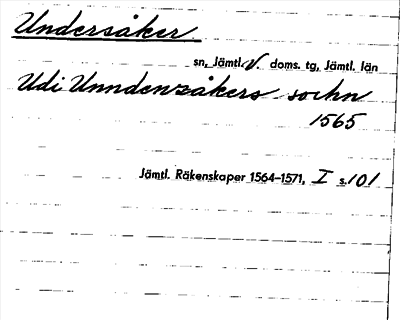 Undersåker
sn, Jämtl. V. doms. tg, Jämtl. län
Udi Unndenszåkers sochn
1565
Jämtl. Räkenskaper 1564–1571, I s. 101